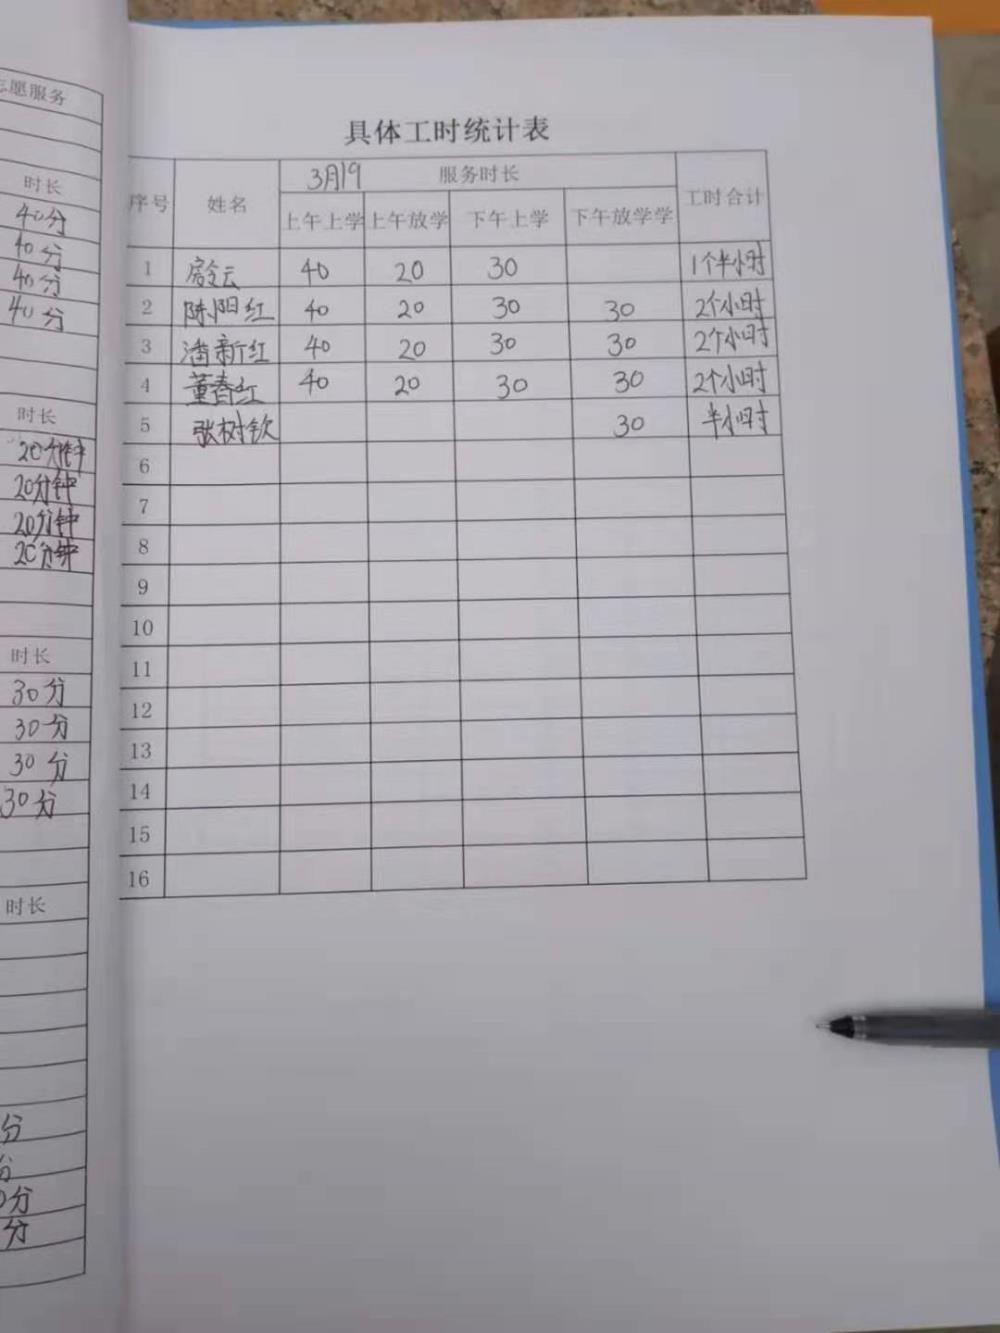 志愿服务
时长
40分
40分
40分
40分
时长
20分钟
20分钟
20分钟
20分钟
时长
30分
30分
30分
30分
时长
分
分
0分
分
具体工时统计表
序号 姓名 3月19 服务时长 工时合计
上午上学 上午放学 下午上学 下午放学学
1 40 20 30 1个半小时
2 陈阳红 40 20 30 30 2个小时
3 潘新红 40 20 30 30 2个小时
4 董春红 40 20 30 30 2个小时
5 张树钦 30 半小时
6
7
8
9
10
11
12
13
14
15
16